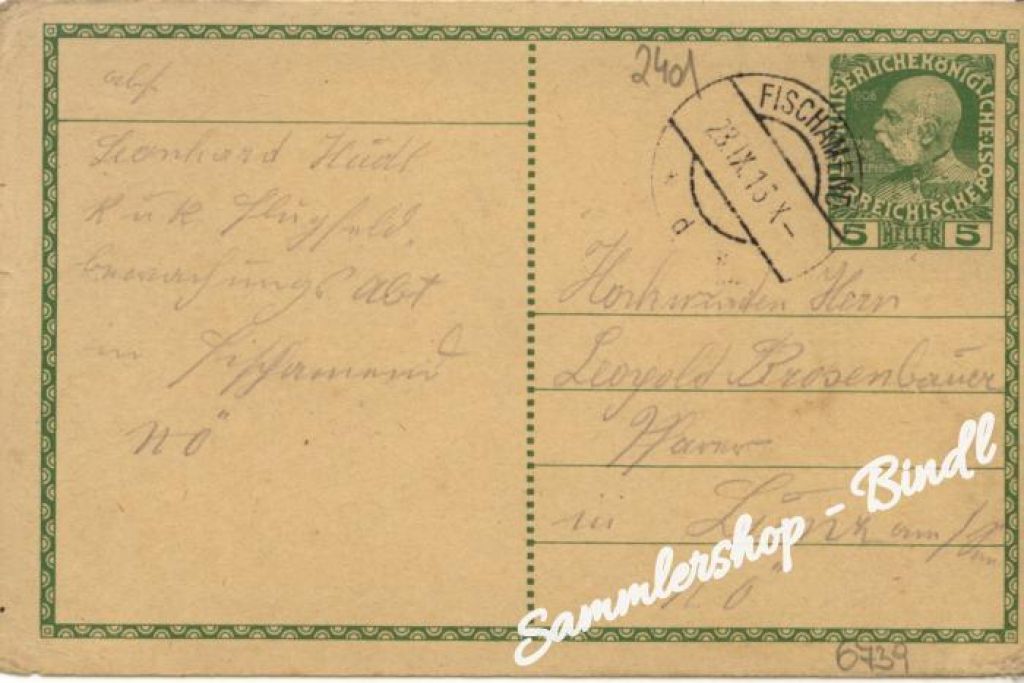 abs.
Leonhard Hudl
K u K Flugfeld,
bewachungs Abt
in Fischamend
NÖ
240
FISCHAMEND
23.IX.15 X-
* d *
KAISERLICHEKÖNIGLICHE
ÖSTERREICHISCHE POST
1908
5 HELLER 5
Hochwürden Herrn
Leopold Brosenbauer
Pfarer
in Lunz am
N. Ö
6739
Sammlershop - Bindl